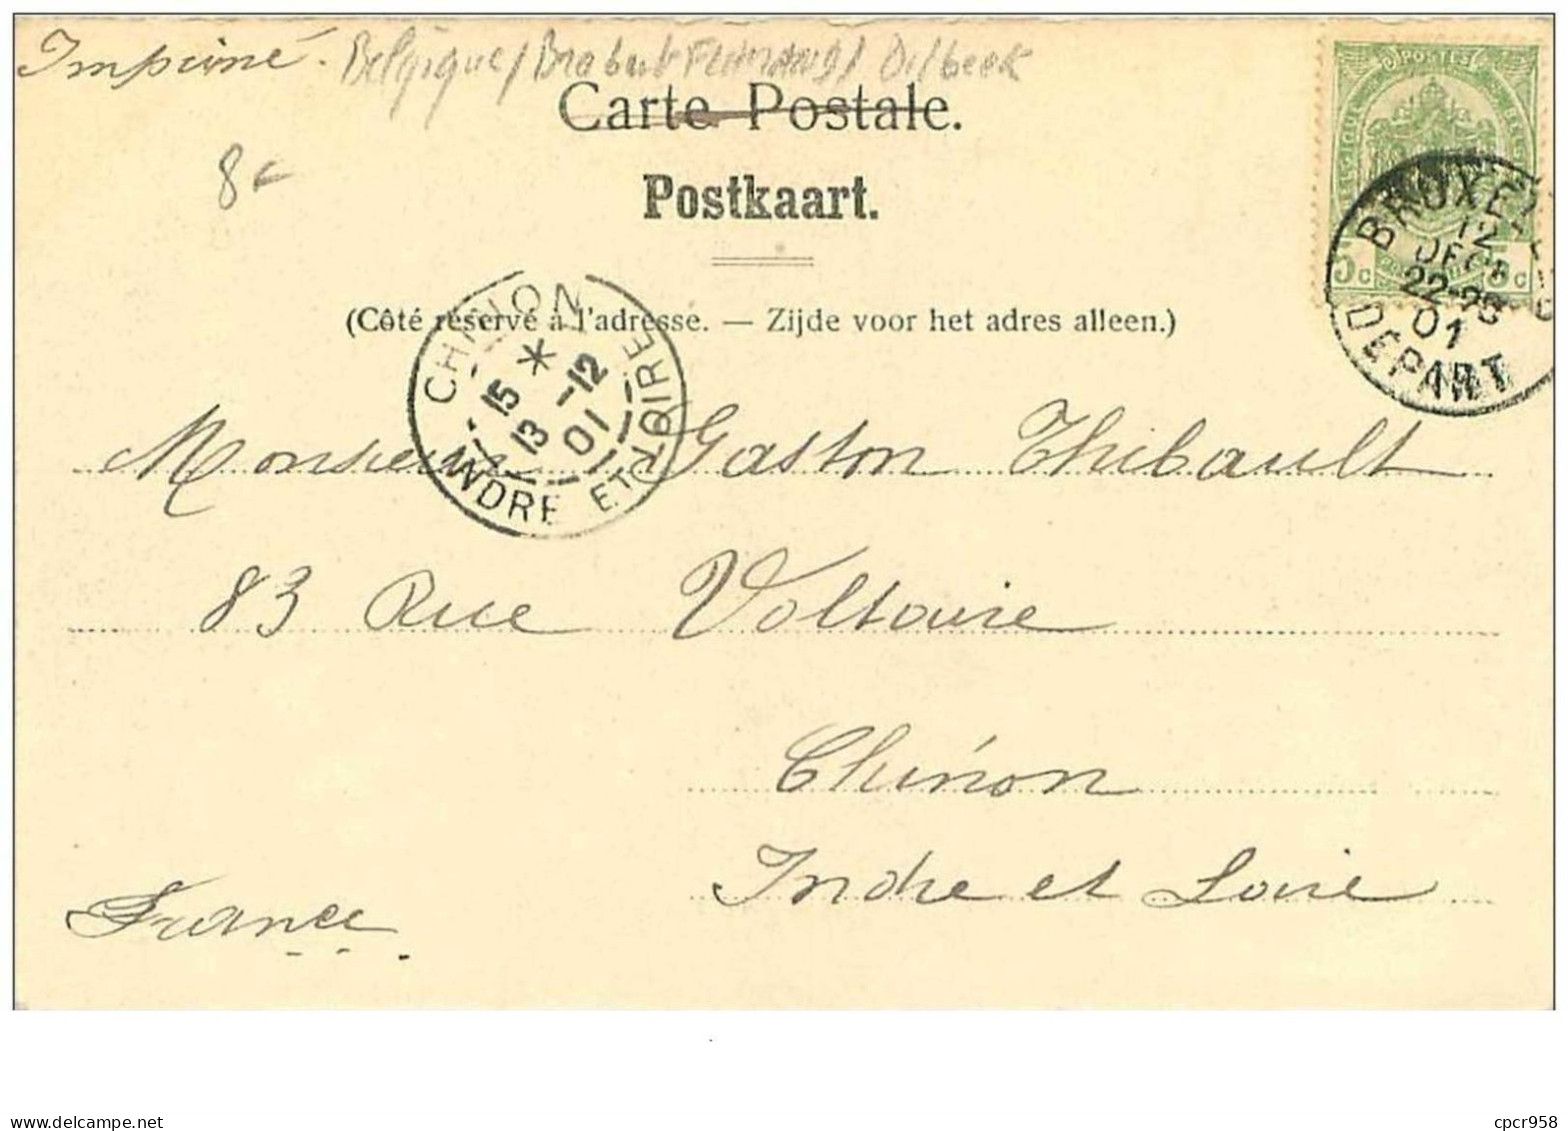 Imprimé. Belgique / Brabant Flamand / Dilbeek
Carte Postale.
8€
Postkaart.
POSTES
5c 5c
BRUXELLES
12
DEC
22-23
01
DEPART
(Côté réservé à l'adresse. — Zijde voor het adres alleen.)
CHINON
15 * 13 -12 01
INDRE ET LOIRE
Monsieur Gaston Thibault
83 Rue Voltaire
Chinon
Indre et Loire
France
www.delcampe.net
cpcr958